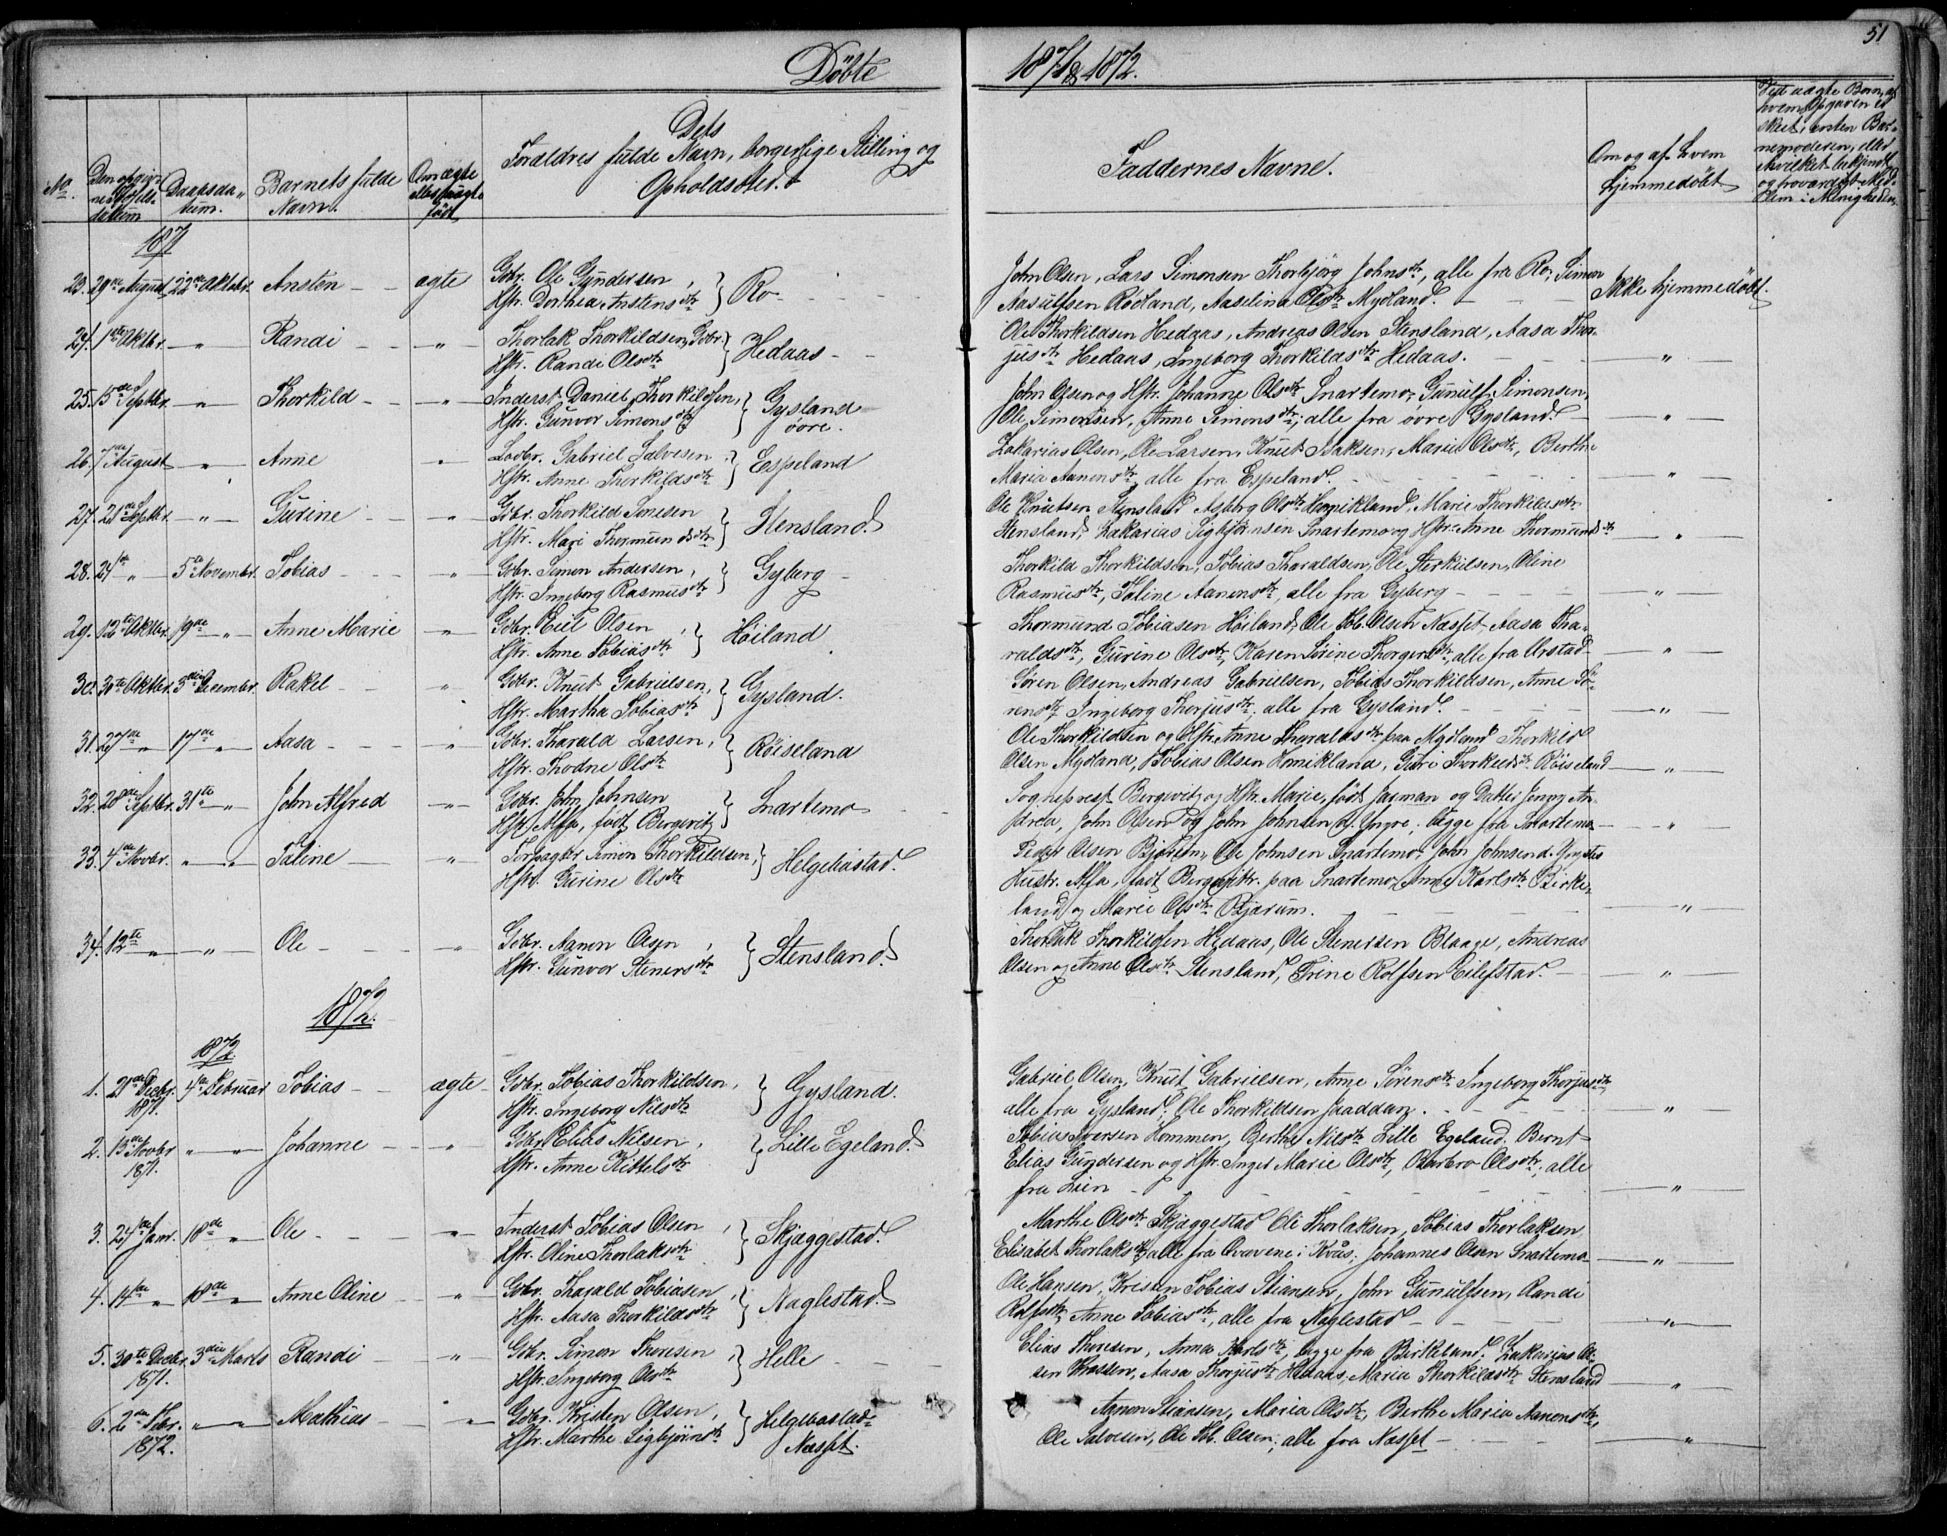 51
Döbte 1871 & 1872.
No. Daabsdatum. Barnets fulde Navn. Om ægte eller uægte født
Dets Forældres fulde Navn, borgerlige Stilling og Opholdssted.
Faddernes Navne.
Om og af hvem hjemmedöbt
1871
23. 29de August 22de Oktobr. Ansten ægte
Gbr. Ole Gundersen, Hstr. Dorthea Anstensdtr } Ro
John Olsen, Lars Simonsen, Thorbjörg Johnsdtr, alle fra Ro, Simon
Aasulfsen Rödland, Aaselina Olsdtr Mydland. Ikke hjemmedöbt.
24. 1ste Oktbr. " Randi "
Thorlak Thorkildsen, Gbr. Hstr. Randi Olsdtr } Hedaas
Ole Thorkildsen Hedaas, Andreas Olsen Stensland, Aasa Thor-
jusdtr Hedaas, Ingeborg Thorkildsdtr Hedaas. "
25. 15de Septbr. " Thorkild "
Inderst Daniel Thorkildsen, Hstr. Gunvor Simonsdtr } Gysland övre.
John Olsen og Hstr. Johanne Olsdtr Snartemo, Gunulf Simonsen,
Ole Simonsen, Anne Simonsdtr, alle fra övre Gysland. "
26. 7de August " Anne "
Gabriel Salvesen Hstr. Anne Thorkildsdtr } Espeland
Zakarias Olsen, Ole Larsen, Knut Isaksen, Marie Olsdtr, Berthe
Maria Aanensdtr, alle fra Espeland. "
27. 21de Septbr. " Gurine "
Gbr. Thorkild Hstr. Mari Thormundsdtr } Stensland
Ole Knutsen Stensland, Asborg Olsdtr Homikland, Marie Thorkildsdtr
Stensland, Zakarias Sigbjörnsen Snartemo og Hstr. Anne Thormundsdtr "
28. 24de " 5te Novembr. Tobias "
Gbr. Simon Andersen, Hstr. Ingeborg Rasmusdtr } Gyberg
Thorkild Thorkildsen, Tobias Tharaldsen, Ole Oline
Rasmusdtr, Taline Aanensdtr, alle fra Gyberg "
29. 12te Oktbr. 19de " Anne Marie "
Gbr. Olsen Hstr. Anne Tobiasdtr } Höiland
Thormund Tobiasen Höiland, Ole Tob. Olsen Næsset, Aasa Tha-
raldsdtr, Gurine Olsdtr, Karen Sörine alle fra Urstad "
30. 30te Oktbr. 3die Decembr. Rakel "
Gbr. Knut Gabrielsen, Hstr. Martha Tobiasdtr } Gysland.
Sören Olsen, Andreas Gabrielsen, Tobias Thorkildsen, Anne Sö-
rensdtr, Ingeborg Thorjusdtr, alle fra Gysland. "
31. 27de " 17de " Aasa "
Gbr. Tharald Larsen, Hstr. Thodne Olsdtr } Röiseland
Ole Thorkildsen og Hstr. Anne Tharaldsdtr paa Mydland, Thorkild
Olsen Mydland, Tobias Olsen Homikland, Guri Röiseland "
32. 28de Septbr. 31te " John Alfred "
Gbr. John Johnsen Hstr. Alfa, født Bergvitz } Snartemo
Sogneprest Bergwitz og Hstr. Marie, født Jarman og Datter Jenny An-
drea, John Olsen og John Johnsen d. Yngre, begge fra Snartemo "
33. 4de Novbr. " " Taline "
Simon Thorkildsen, Hstr. Gurine Olsdtr } Helgebostad.
Peder Olsen Bjærum, Ole Johnsen Snartemo, John Johnsen d. Yngstes
Hustr. Alfa, født Bergvitz paa Snartemo, Anne Karlsdtr Birke-
land og Marie Olsdtr Bjærum. "
34. 12te " " " Ole "
Gbr. Aanen Olsen, Hstr. Gunvor Stenersdtr } Stensland.
Thorlak Thorkildsen Hedaas, Ole Stenersen Blaage, Andreas
Olsen og Anne Olsdtr Stensland, Trine Rolfsen Eilefstad. "
1872.
1872.
1. 21de Decbr. 1871. 4de Februar Tobias ægte
Gbr. Tobias Thorkildsen, Hstr. Ingeborg Nilsdtr } Gysland.
Gabriel Olsen, Knut Gabrielsen, Anne Sörensdtr, Ingeborg Thorjusdtr,
alle fra Gysland, Ole Thorkildsen "
2. 13de Novbr 1871. " " Johanne "
Gbr. Elias Nilsen, Hstr. Anne Kittelsdtr } Lille Egeland.
Tobias Iversen Hommen, Berthe Nilsdtr Lille Egeland. Bernt
Elias Gundersen og Hstr. Inger Marie Olsdtr, Barbro Olsdtr, alle
fra Lien "
3. 24de Janr. 18de " Ole "
Inderst Tobias Olsen, Hstr. Oline Thorlaksdtr } Skjæggestad.
Marthe Olsdtr Skjæggestad, Ole Thorlaksen, Tobias Thorlaksen,
Elisabet Thorlaksdtr, alle fra Qvavene i Kvås, Johannes Olsen Snartemo "
4. 14de " 18de " Anne Oline "
Gbr. Tharald Tobiasen, Hstr. Aasa Thorkildsdtr } Naglestad.
Ole Hansen, Kristen Tobias Stiansen, John Gunulfsen, Randi
Rolfsdtr, Anne Tobiasdtr, alle fra Naglestad "
5. 30te Decbr. 1871. 3die Marts Randi "
Gbr. Simon Thoresen Hstr. Ingeborg Olsdtr } Helle
Elias Thoresen, Anna Karlsdtr, begge fra Birkeland. Zakarias Ol-
sen Aasa Thorjusdtr Hedaas, Maria Thorkildsdtr Stensland "
6. 2den Febr. 1872. " " Mathias "
Gbr. Kristen Olsen, Hstr. Marthe Sigbjörnsdtr } Helgebostad-Næsset.
Aanon Stiansen, Maria Olsdtr, Berthe Maria Aanonsdtr,
Ole Salvesen, Ole Tob. Olsen, alle fra Næsset "